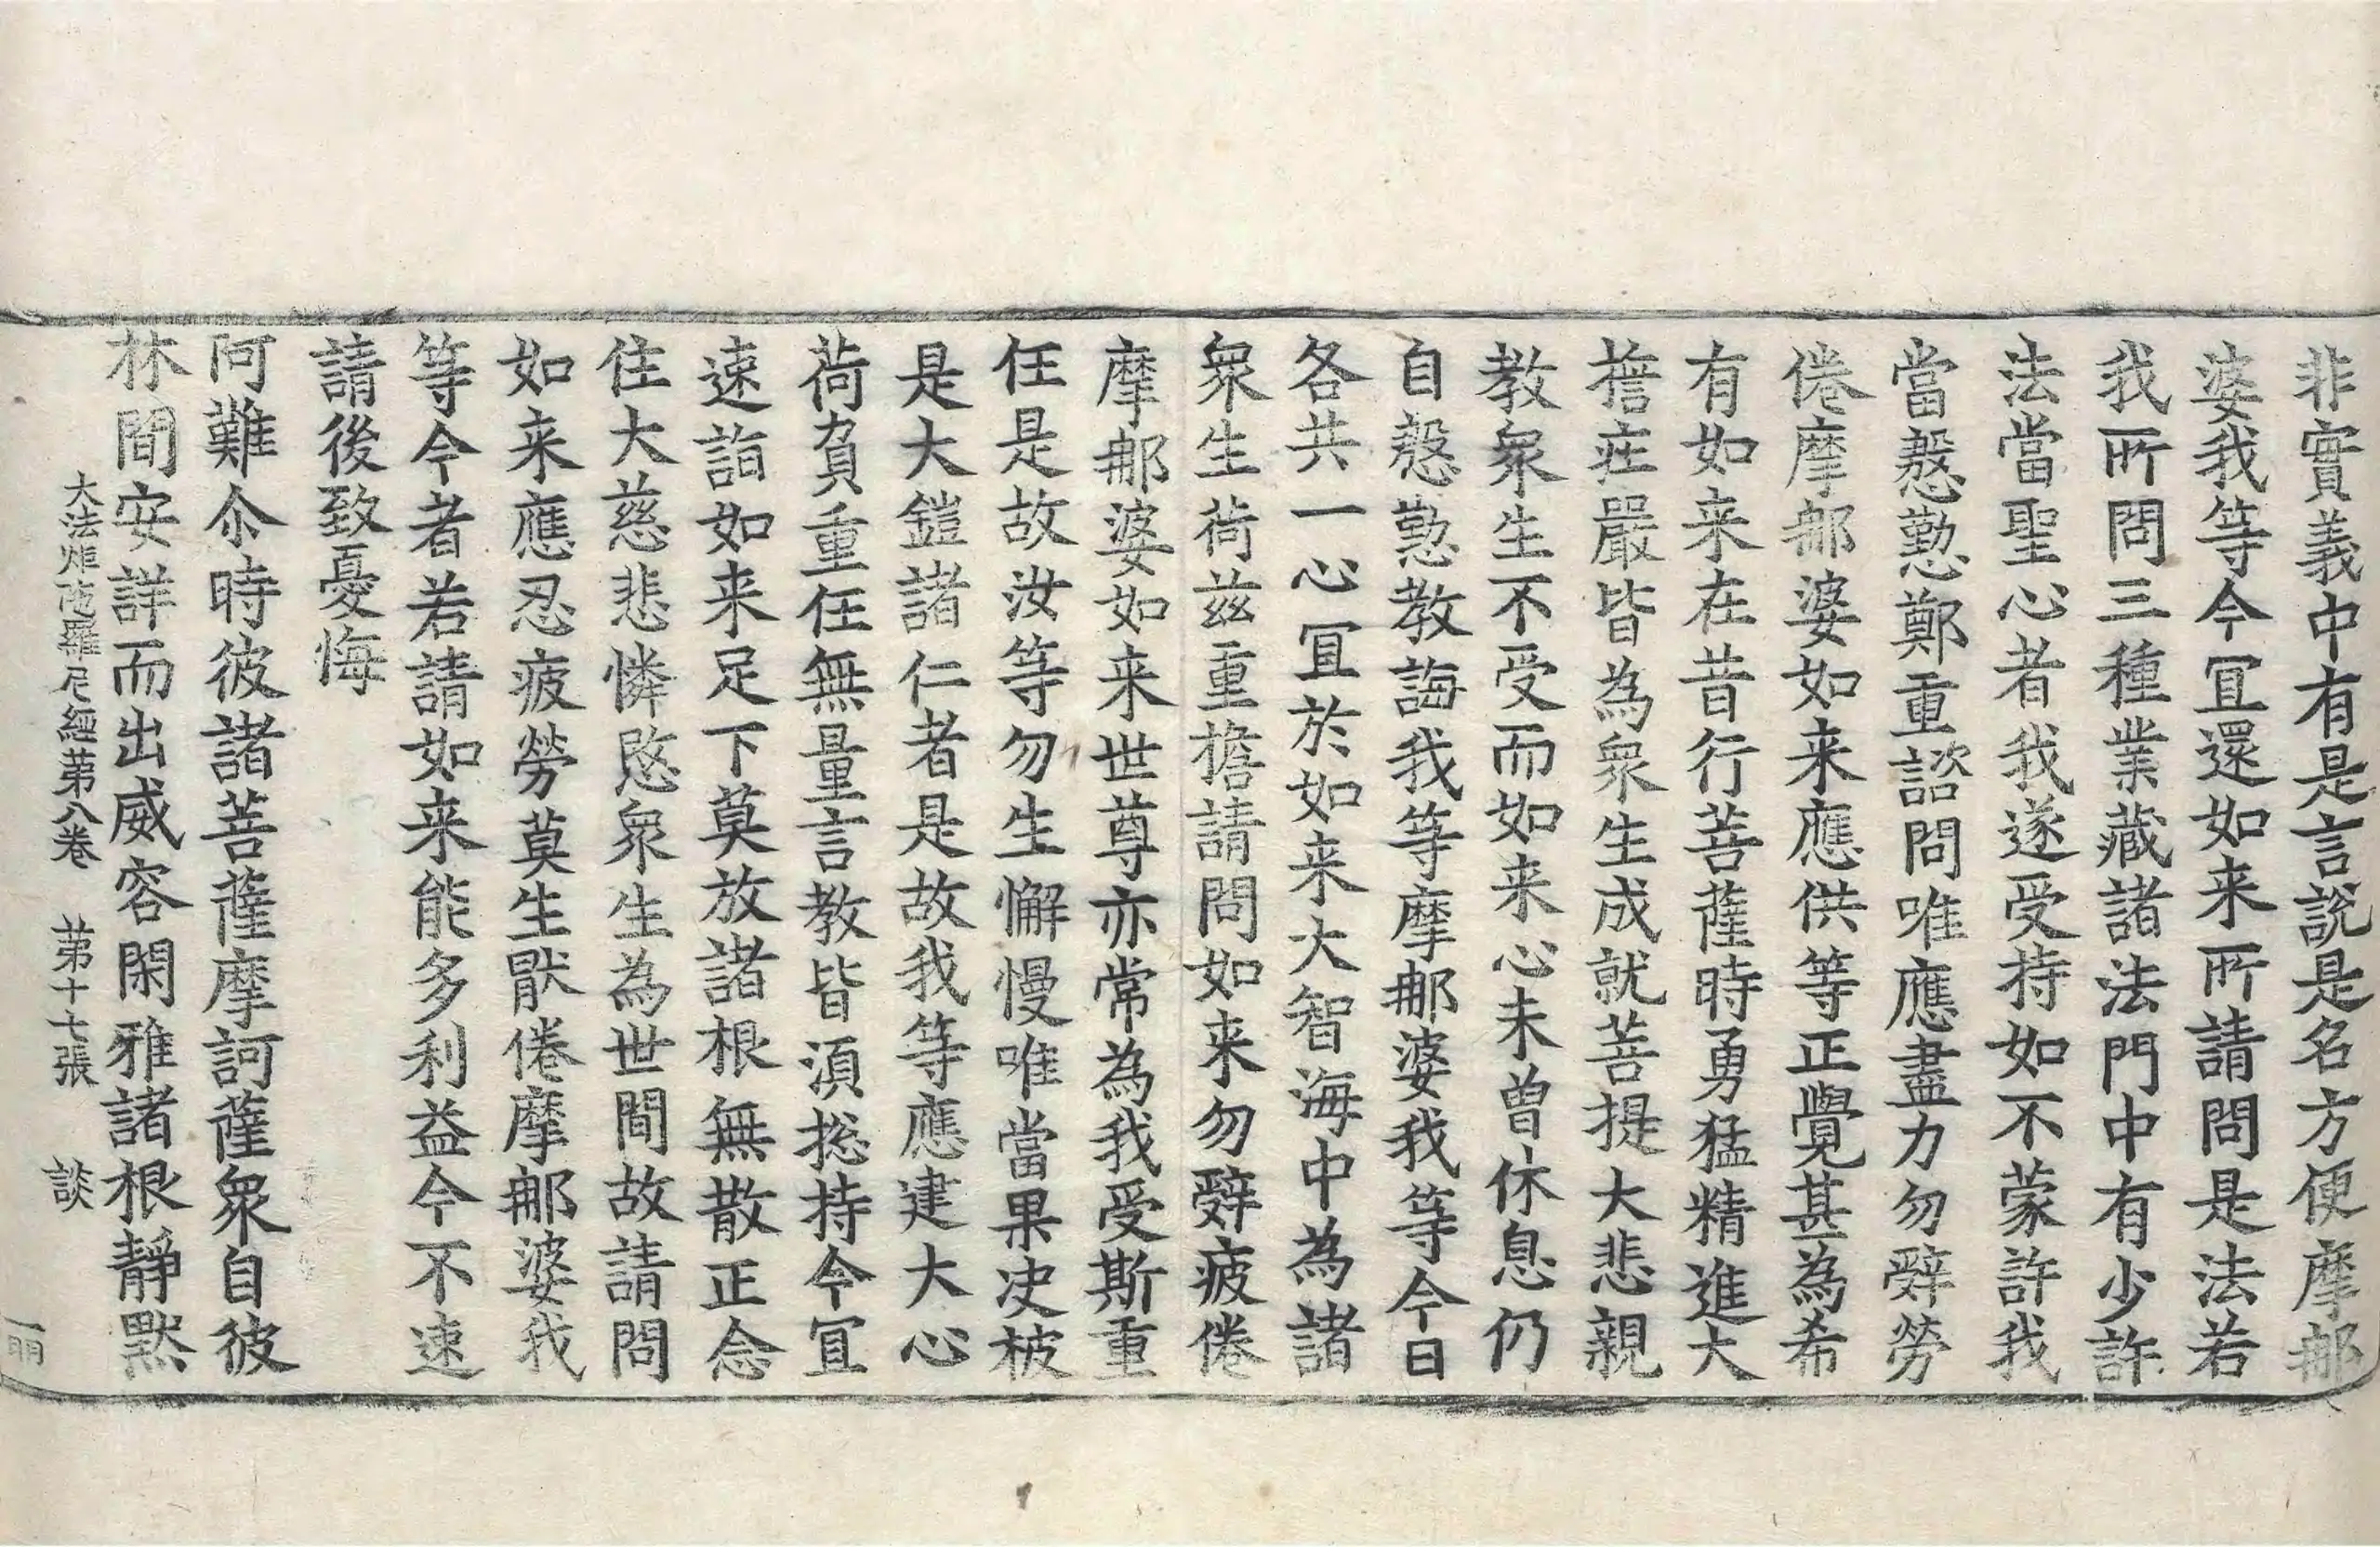 非實義中有是言說是名方便摩那
婆我等今冝還如来所請問是法若
我所問三種業藏諸法門中有少許
法當聖心者我遂受持如不蒙許我
當慇懃鄭重諮問唯應盡力勿辤勞
倦摩那婆如来應供等正覺甚為希
有如来在昔行菩薩時勇猛精進大
擔疘嚴皆為衆生成就菩提大悲親
教衆生不受而如来心未曽休息仍
自慇懃教誨我等摩那婆我等今日
各共一心冝於如来大智海中為諸
衆生荷兹重擔請問如来勿辤疲倦
摩那婆如来世尊亦常為我受斯重
任是故汝等勿生懈慢唯當果决被
是大鎧諸仁者是故我等應建大心
荷負重任無量言教皆湏揔持今冝
速詣如来足下莫放諸根無散正念
住大慈悲憐愍衆生為世間故請問
如来應忍疲勞莫生猒倦摩那婆我
等今者若請如来能多利益今不速
請後致憂悔
阿難尒時彼諸菩薩摩訶薩衆自彼
林間安詳而出威容閑雅諸根靜黙
大法炬陁羅尼經苐八卷　苐十七張　談